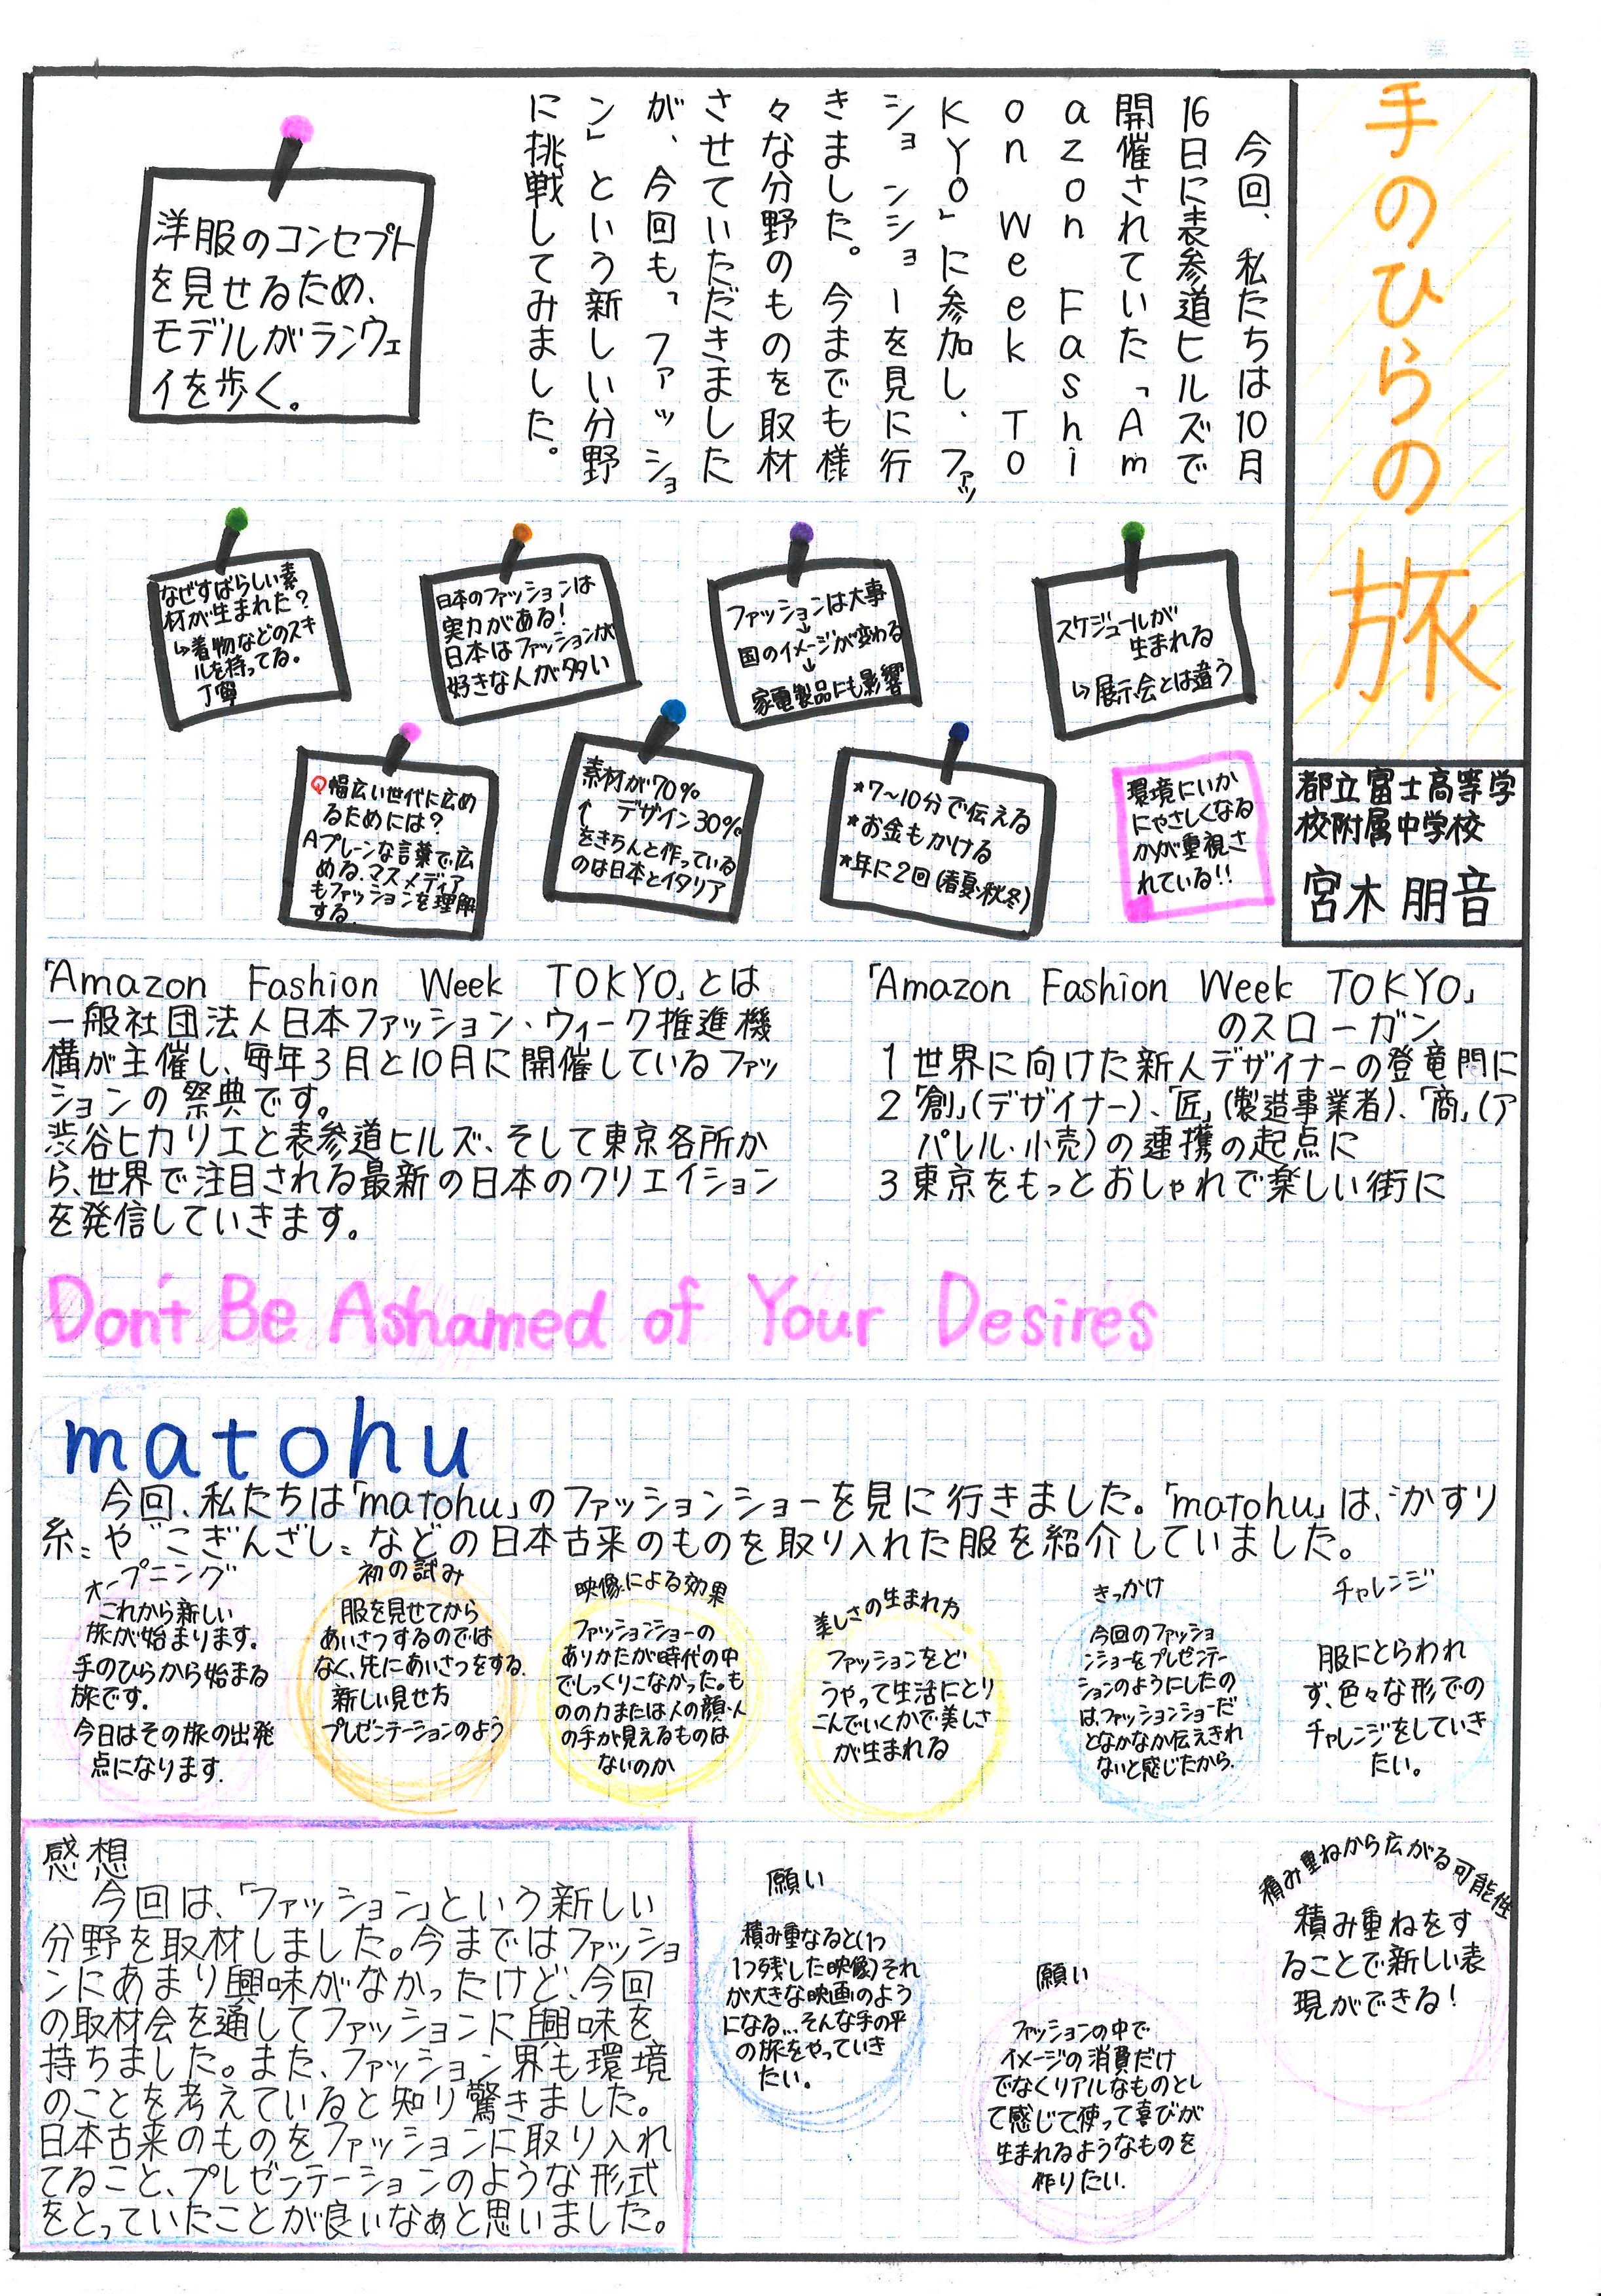 手のひらの旅
都立富士高等学
校附属中学校
宮木 朋音
今回、私たちは10月
16日に表参道ヒルズで
開催されていた「Am
azon Fashi
on Week TO
KYO」に参加し、ファッ
ションショーを見に行
きました。今までも様
々な分野のものを取材
させていただきました
が、今回も「ファッショ
ン」という新しい分野
に挑戦してみました。
洋服のコンセプト
を見せるため、
モデルがランウェ
イを歩く。
スケジュールが
生まれる
↳展示会とは違う
ファッションは大事
↓
国のイメージが変わる
↓
家電製品にも影響
日本のファッションは
実力がある!
日本はファッションが
好きな人が多い
なぜすばらしい素
材が生まれた?
↳着物などのスキ
ルを持ってる。
丁寧
環境にいか
にやさしくなる
かが重視さ
れている!!
*7~10分で伝える
*お金もかける
*年に2回(春夏・秋冬)
素材が70%
↑ デザイン30%
をきちんと作っている
のは日本とイタリア
Q幅広い世代に広め
るためには?
Aプレーンな言葉で広
める、マスメディア
もファッションを理解
する。
「Amazon Fashion Week TOKYO」とは
一般社団法人日本ファッション・ウィーク推進機
構が主催し、毎年3月と10月に開催しているファッ
ションの祭典です。
渋谷ヒカリエと表参道ヒルズ、そして東京各所か
ら、世界で注目される最新の日本のクリエイション
を発信していきます。
「Amazon Fashion Week TOKYO」
のスローガン
1 世界に向けた新人デザイナーの登竜門に
2 「創」(デザイナー)、「匠」(製造事業者)、「商」(ア
パレル・小売)の連携の起点に
3 東京をもっとおしゃれで楽しい街に
Don't Be Ashamed of Your Desires
matohu
今回、私たちは「matohu」のファッションショーを見に行きました。「matohu」は、〝かすり
糸〟や〝こぎんざし〟などの日本古来のものを取り入れた服を紹介していました。
オープニング
これから新しい
旅が始まります。
手のひらから始まる
旅です。
今日はその旅の出発
点になります。
初の試み
服を見せてから
あいさつするのでは
なく、先にあいさつをする。
新しい見せ方
プレゼンテーションのよう
映像による効果
ファッションショーの
ありかたが時代の中
でしっくりこなかった。も
のの力または人の顔・人
の手が見えるものは
ないのか
美しさの生まれ方
ファッションをど
うやって生活にとり
こんでいくかで美しさ
が生まれる
きっかけ
今回のファッショ
ンショーをプレゼンテー
ションのようにしたの
は、ファッションショーだ
となかなか伝えきれ
ないと感じたから。
チャレンジ
服にとらわれ
ず、色々な形での
チャレンジをしていき
たい。
感想
今回は、「ファッション」という新しい
分野を取材しました。今まではファッショ
ンにあまり興味がなかったけど、今回
の取材会を通してファッションに興味を
持ちました。また、ファッション界も環境
のことを考えていると知り驚きました。
日本古来のものをファッションに取り入れ
てること、プレゼンテーションのような形式
をとっていたことが良いなぁと思いました。
願い
積み重なると(1つ
1つ残した映像)それ
が大きな映画のよう
になる…そんな手の平
の旅をやっていき
たい。
願い
ファッションの中で
イメージの消費だけ
でなくリアルなものとし
て感じて、使って喜びが
生まれるようなものを
作りたい。
積み重ねから広がる可能性
積み重ねをす
ることで新しい表
現ができる!